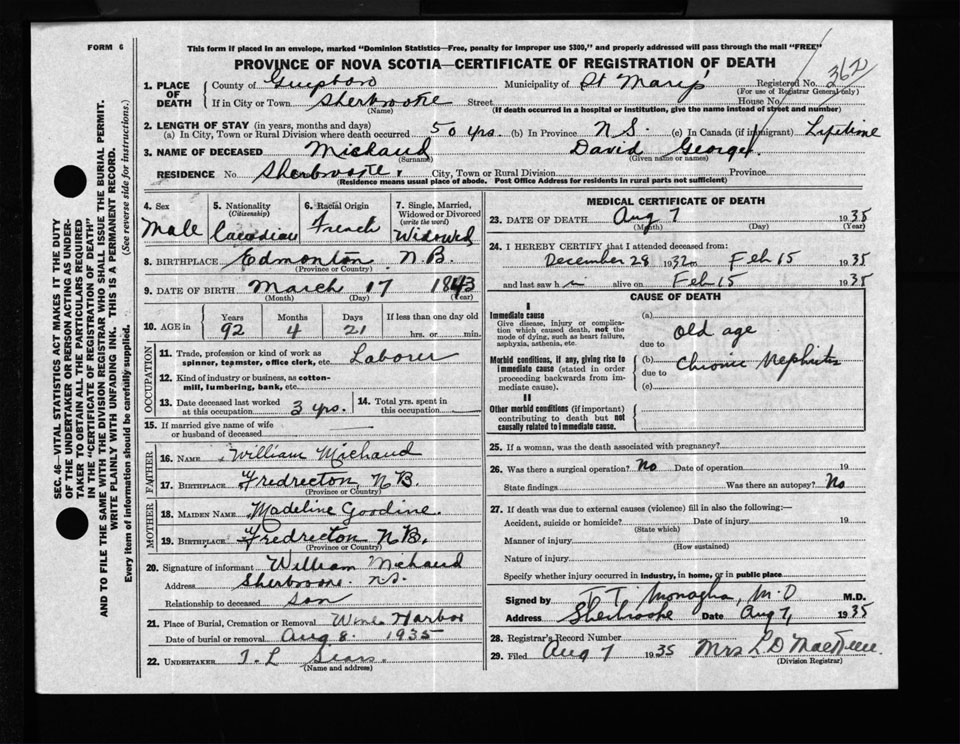 FORM 6
This form if placed in an envelope, marked "Dominion Statistics—Free, penalty for improper use $300," and properly addressed will pass through the mail "FREE"
PROVINCE OF NOVA SCOTIA—CERTIFICATE OF REGISTRATION OF DEATH
1. PLACE OF DEATH County of Guysboro Municipality of St Mary's Registered No. 362
(For use of Registrar General only)
If in City or Town Sherbrooke Street House No.
(Name) (If death occurred in a hospital or institution, give the name instead of street and number)
2. LENGTH OF STAY (in years, months and days)
(a) In City, Town or Rural Division where death occurred 50 yrs. (b) In Province N.S. (c) In Canada (if immigrant) Lifetime
3. NAME OF DECEASED Michaud David George.
(Surname) (Given name or names)
RESIDENCE No Sherbrooke. City, Town or Rural Division Province
(Residence means usual place of abode. Post Office Address for residents in rural parts not sufficient)
4. Sex Male
5. Nationality (Citizenship) Cacadian
6. Racial Origin French
7. Single, Married, Widowed or Divorced (write the word) Widowed
8. BIRTHPLACE Edmonton N.B.
(Province or Country)
9. DATE OF BIRTH March 17 1843
(Month) (Day) (Year)
10. AGE in Years 92 Months 4 Days 21 If less than one day old hrs. or min.
OCCUPATION
11. Trade, profession or kind of work as spinner, teamster, office clerk, etc. Laborer
12. Kind of industry or business, as cotton-mill, lumbering, bank, etc.
13. Date deceased last worked at this occupation 3 yrs. 14. Total yrs. spent in this occupation
15. If married give name of wife or husband of deceased
FATHER
16. NAME William Michaud
17. BIRTHPLACE Fredrecton, N B.
(Province or Country)
MOTHER
18. MAIDEN NAME Madeline Goodine.
19. BIRTHPLACE Fredrecton N B.
(Province or Country)
20. Signature of informant William Michaud
Address Sherbrooke. N.S.
Relationship to deceased son
21. Place of Burial, Cremation or Removal Wine Harbor
Date of burial or removal Aug 8. 1935
22. UNDERTAKER J. L Sears.
(Name and address)
MEDICAL CERTIFICATE OF DEATH
23. DATE OF DEATH Aug 7 1935
(Month) (Day) (Year)
24. I HEREBY CERTIFY that I attended deceased from:
December 28 1932 to Feb 15 1935
and last saw h im alive on Feb 15 1935
CAUSE OF DEATH
I
Immediate cause
Give disease, injury or complication which caused death, not the mode of dying, such as heart failure, asphyxia, asthenia, etc.
(a) Old age
due to
Morbid conditions, if any, giving rise to immediate cause (stated in order proceeding backwards from immediate cause).
(b) Chronic Nephritis
due to
(c)
II
Other morbid conditions (if important) contributing to death but not causally related to immediate cause.
25. If a woman, was the death associated with pregnancy?
26. Was there a surgical operation? No Date of operation 19
State findings Was there an autopsy? No
27. If death was due to external causes (violence) fill in also the following:—
Accident, suicide or homicide? Date of injury 19
(State which)
Manner of injury
(How sustained)
Nature of injury
Specify whether injury occurred in industry, in home, or in public place
Signed by M.D M.D.
Address Sherbrooke Date Aug 7, 1935
28. Registrar's Record Number
29. Filed Aug 7 1935 Mrs L D
(Division Registrar)
SEC. 46—VITAL STATISTICS ACT MAKES IT THE DUTY
OF THE UNDERTAKER OR PERSON ACTING AS UNDER-
TAKER TO OBTAIN ALL THE PARTICULARS REQUIRED
IN THE "CERTIFICATE OF REGISTRATION OF DEATH"
AND TO FILE THE SAME WITH THE DIVISION REGISTRAR WHO SHALL ISSUE THE BURIAL PERMIT.
WRITE PLAINLY WITH UNFADING INK. THIS IS A PERMANENT RECORD.
Every item of information should be carefully supplied. (See reverse side for instructions.)